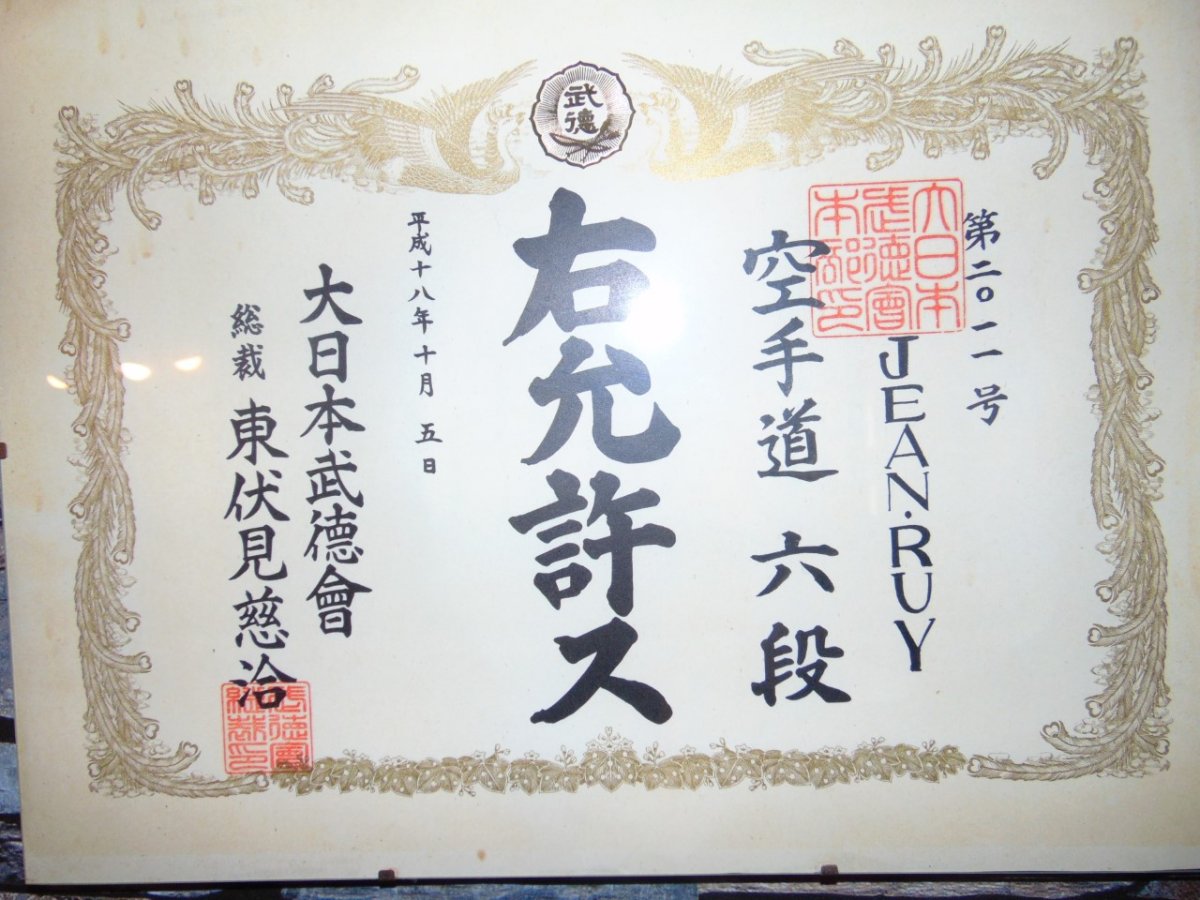 武德
第二〇一一号
大日本
武德會
本部印
JEAN.RUY
空手道 六段
右允許ス
平成十八年十月 五日
大日本武德會
総裁 東伏見慈洽
武德會
総裁印